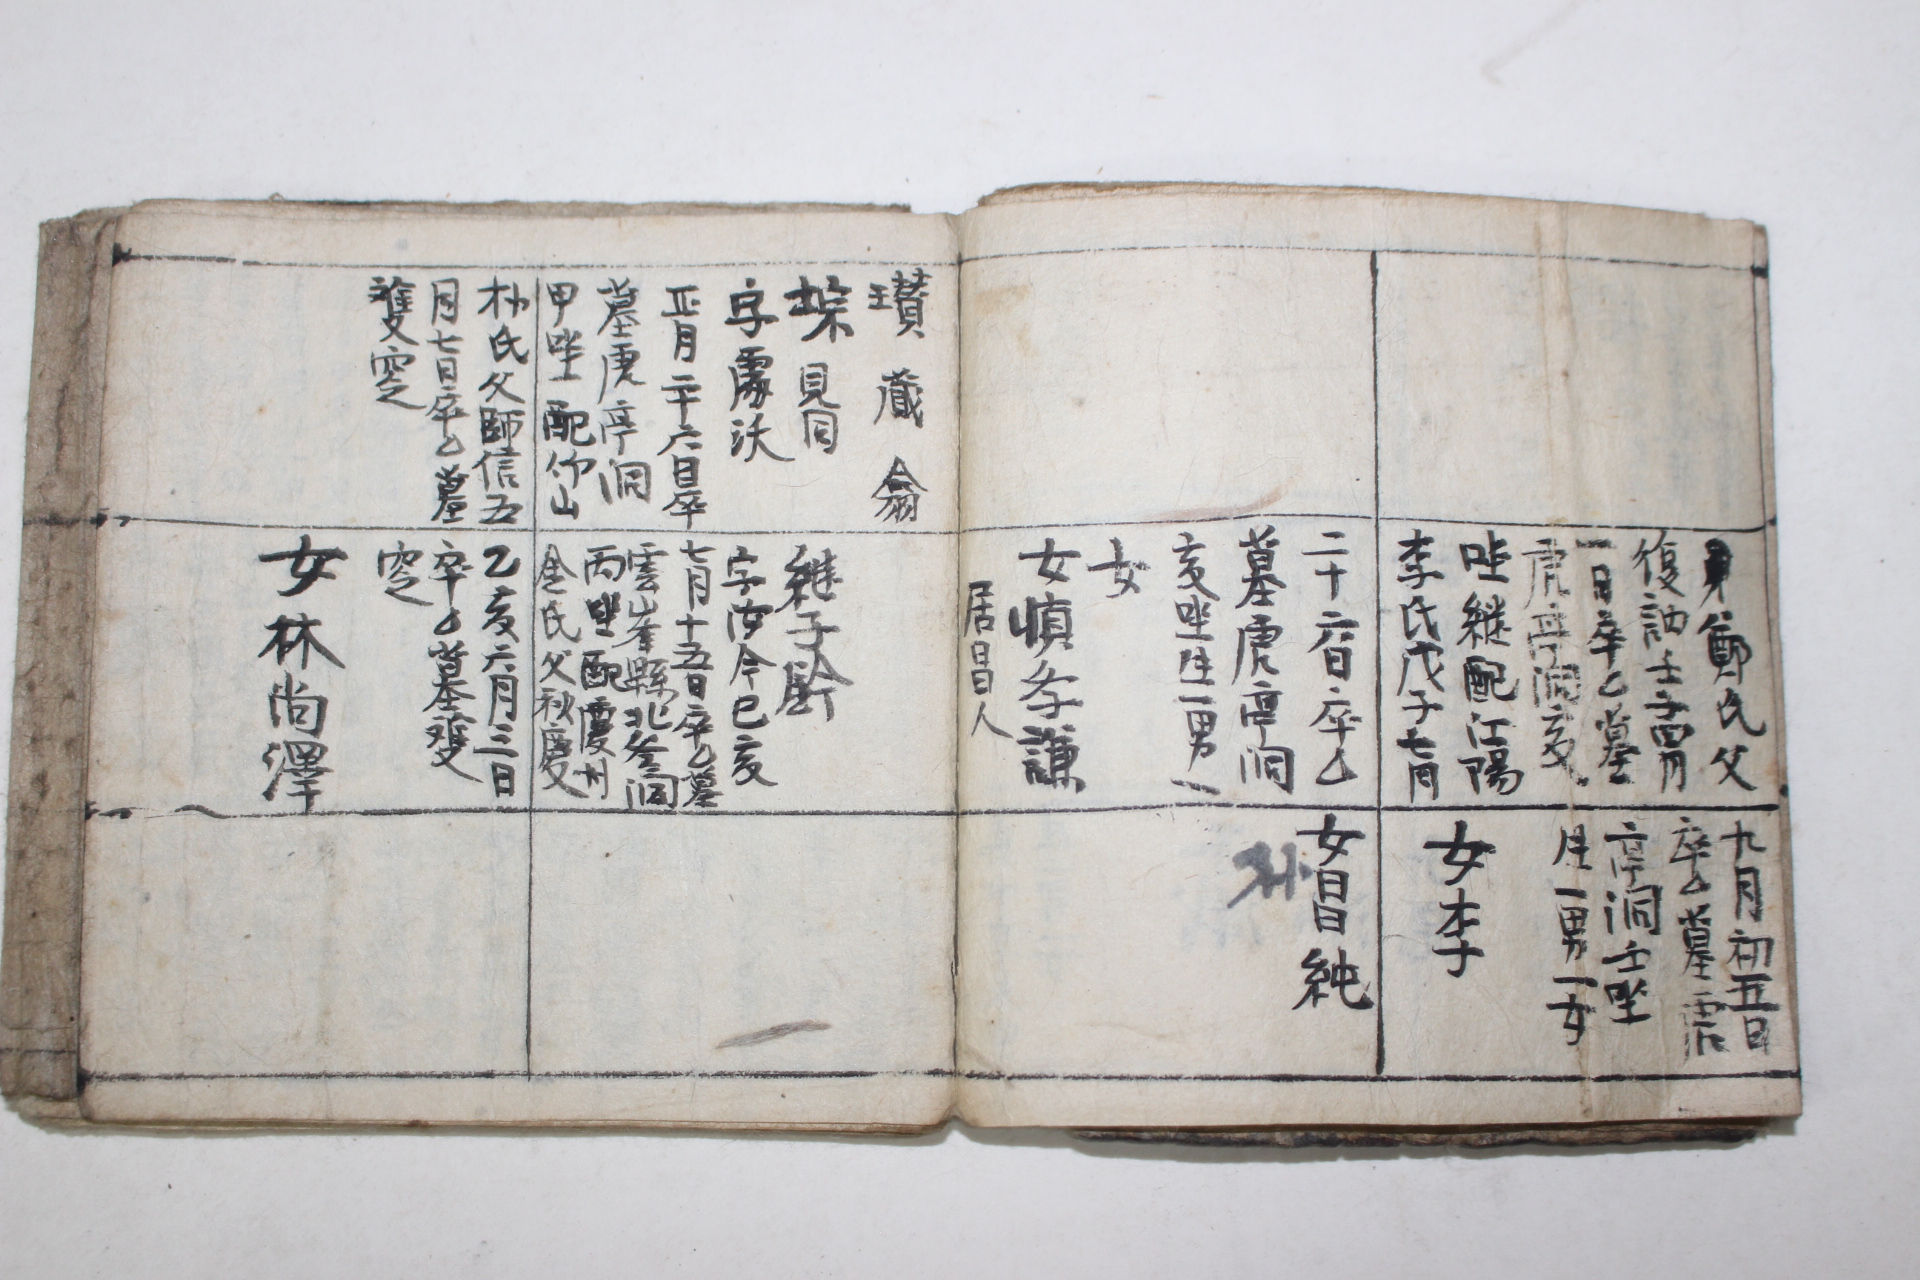 鄭氏父
復誧壬子四月
一日卒乙墓
虎亭洞亥
坐継配江陽
李氏戊子七月
二十六日卒乙
墓虎亭洞
亥坐生一男一
女
女慎冬謙
居昌人
九月初五日
卒乙墓虎
亭洞壬坐
生一男一女
女李
女昌純
瓚 蔵 翕
見同
字處沃
正月二十六日卒
墓虎亭洞
甲坐配竹山
朴氏父師信五
月七日卒乙墓
雙窆
継子
字汝今己亥
七月十五日卒乙墓
雲峯縣北谷洞
丙坐配慶州
金氏父秋慶
乙亥六月三日
卒乙墓雙
窆
女林尚澤